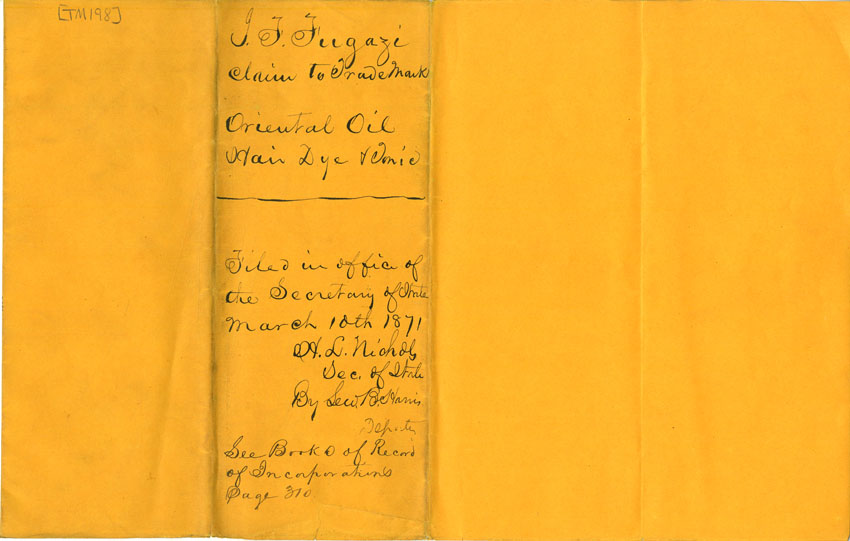 [TM198]
J. F. Fugazi
Claim to Trade Mark
Oriental Oil
Hair Dye & Tonic
Filed in office of
the Secretary of State
March 10th 1871
H. L. Nichols
Sec. of State
By Lew B. Harris
Deputy
See Book of Record
of Incorporations
Page 310